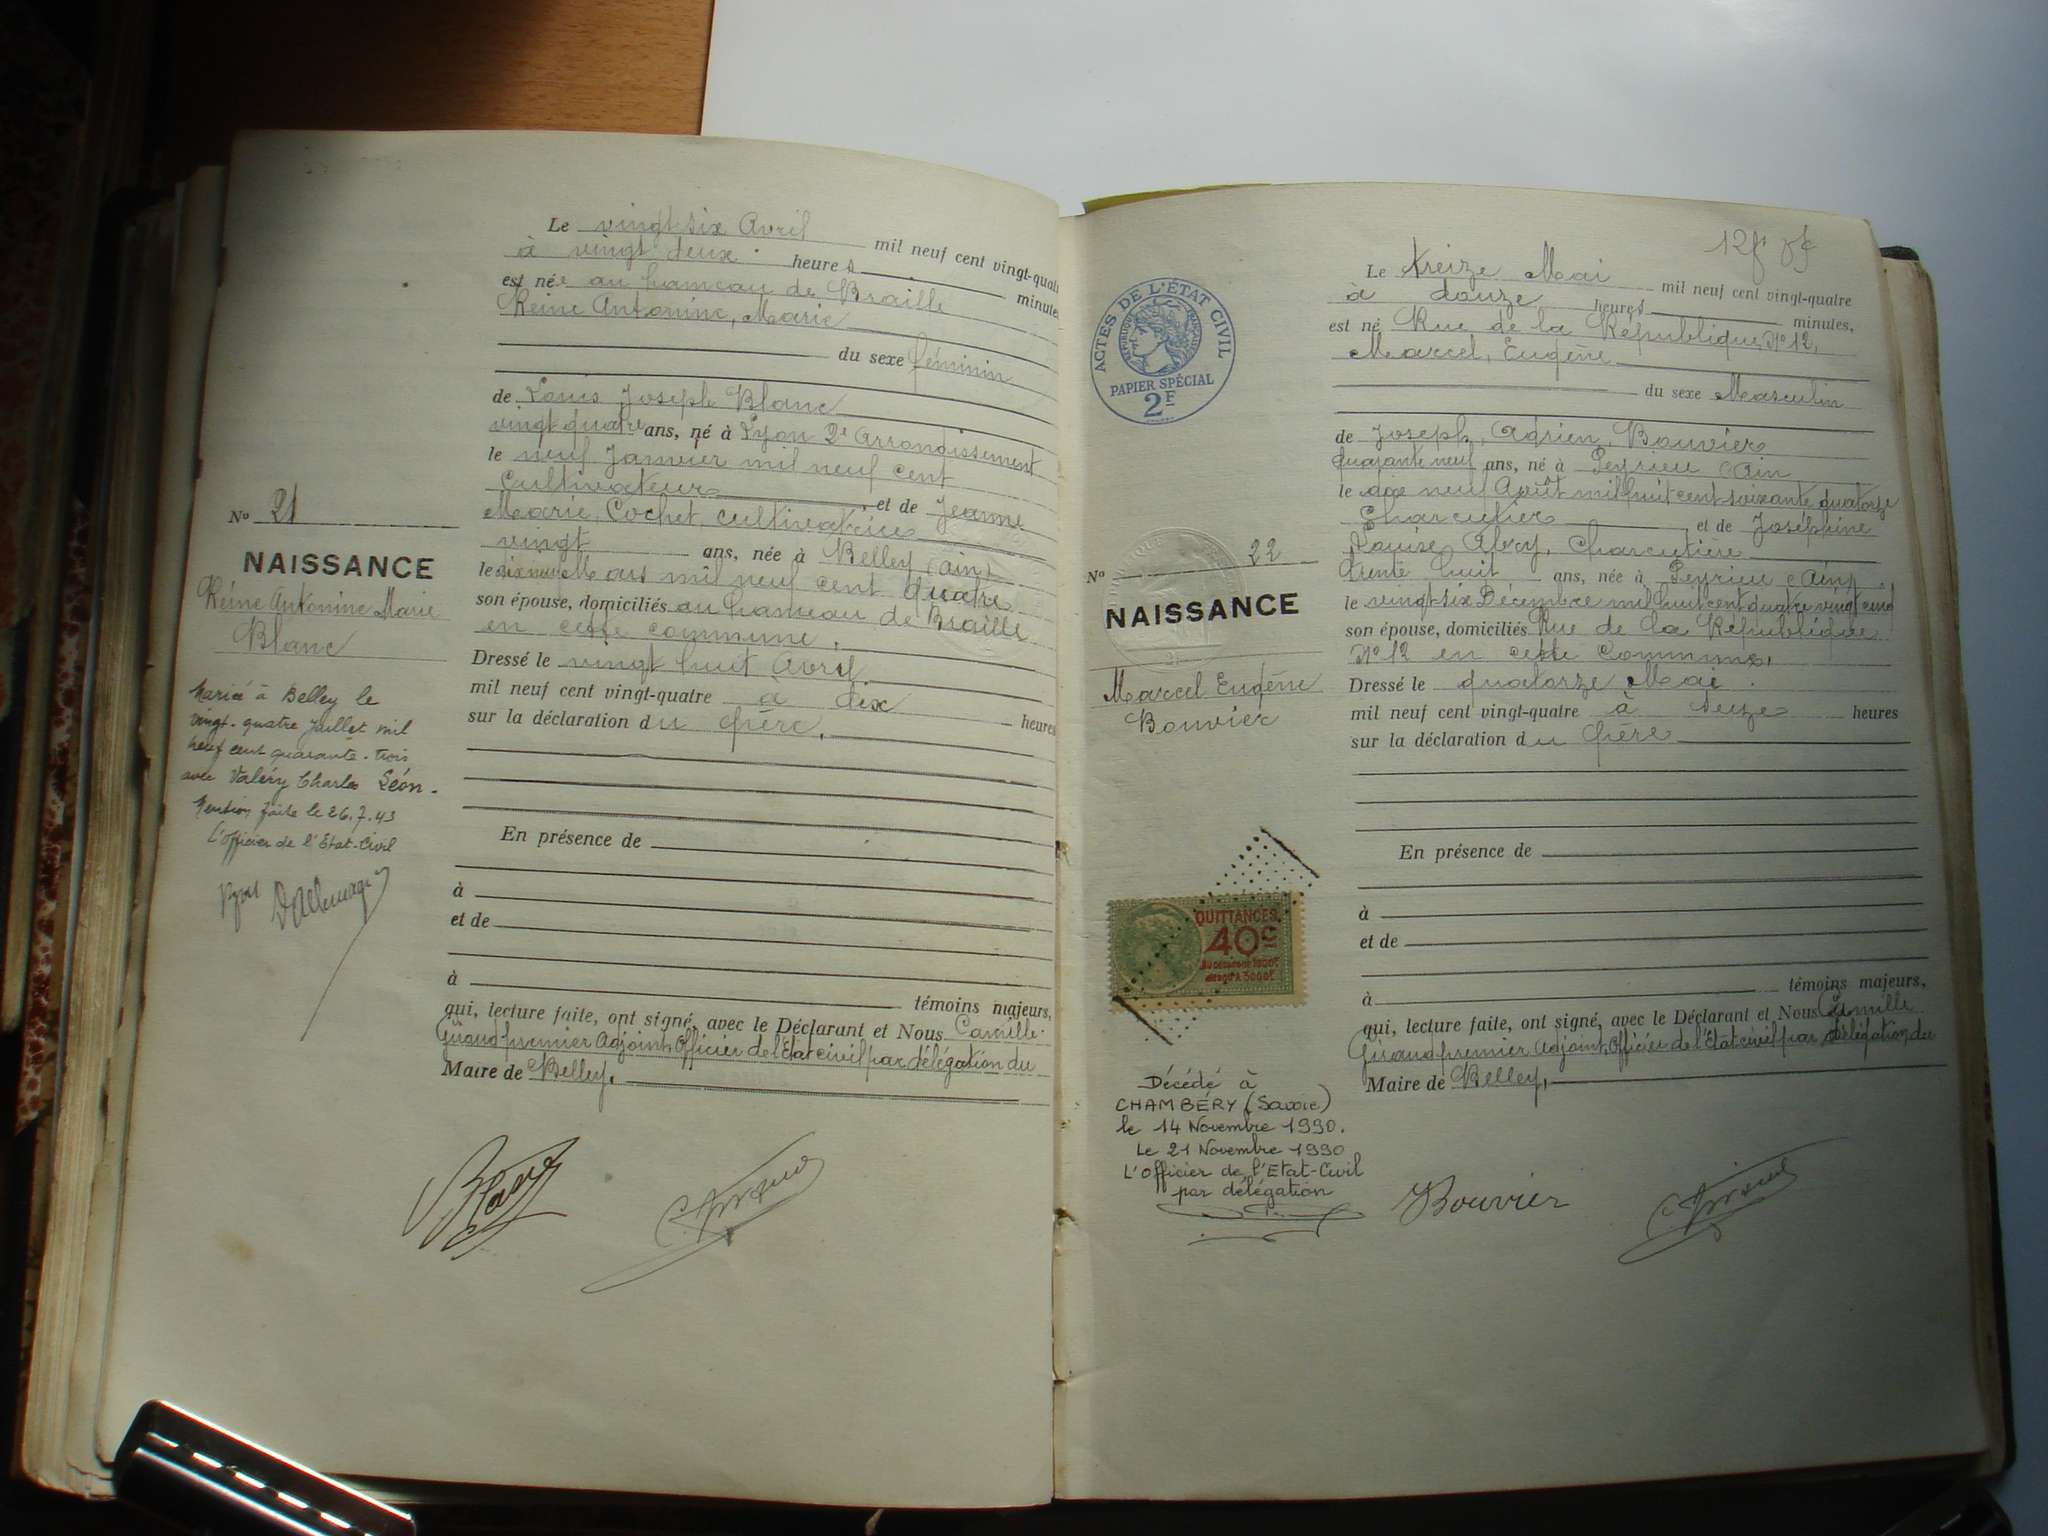 Le vingt-six Avril mil neuf cent vingt-quatre
à vingt deux heures minutes
est née au hameau de Braille
Reine Antonine, Marie
du sexe féminin
de Louis Joseph Blanc
vingt quatre ans, né à Lyon 2e Arrondissement
le neuf Janvier mil neuf cent
Cultivateur, et de Jeanne
Marie, Cochet, cultivatrice
vingt ans, née à Belley (Ain)
le Mars mil neuf cent quatre
son épouse, domiciliés au hameau de Braille
en cette commune.
Dressé le vingt huit Avril
mil neuf cent vingt-quatre à dix heures
sur la déclaration du Père.
En présence de
à
et de
à témoins majeurs,
qui, lecture faite, ont signé, avec le Déclarant et Nous Camille
Giraud premier Adjoint, Officier de l'Etat civil par délégation du
Maire de Belley.
No 21
NAISSANCE
Reine Antonine Marie
Blanc
Mariée à Belley le
vingt-quatre Juillet mil
neuf cent quarante-trois
avec Valéry Charles Léon.
Mention faite le 26.7.43
L'Officier de l'Etat-Civil
Blanc
ACTES DE L'ÉTAT CIVIL
RÉPUBLIQUE FRANÇAISE
PAPIER SPÉCIAL
2F
No 22
NAISSANCE
Marcel Eugène
Bouvier
QUITTANCES
40c
Décédé à
CHAMBÉRY (Savoie)
le 14 Novembre 1990.
Le 21 Novembre 1990
L'Officier de l'Etat-Civil
par délégation
Le treize Mai mil neuf cent vingt-quatre
à douze heures minutes,
est né Rue de la République, No 12,
Marcel, Eugène
du sexe Masculin
de Joseph, Adrien, Bouvier
quarante neuf ans, né à Peyrieu (Ain
le dix neuf Août mil huit cent soixante quatorze
Charcutier, et de Joséphine
Louise Abry, Charcutière
trente huit ans, née à Peyrieu (Ain)
le vingt-six Décembre mil huit cent quatre vingt cinq
son épouse, domiciliés Rue de la République
No 12 en cette Commune,
Dressé le quatorze Mai.
mil neuf cent vingt-quatre à heures
sur la déclaration du Père
En présence de
à
et de
à témoins majeurs,
qui, lecture faite, ont signé, avec le Déclarant et Nous Camille
Giraud premier Adjoint, Officier de l'Etat civil par délégation du
Maire de Belley,
Bouvier